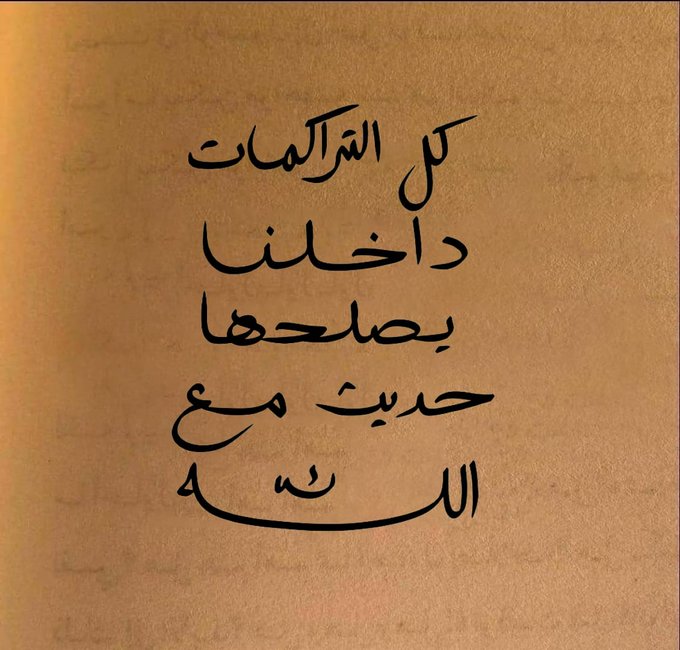 كل التراكمات
داخلنا
يصلحها
حديث مع
الله